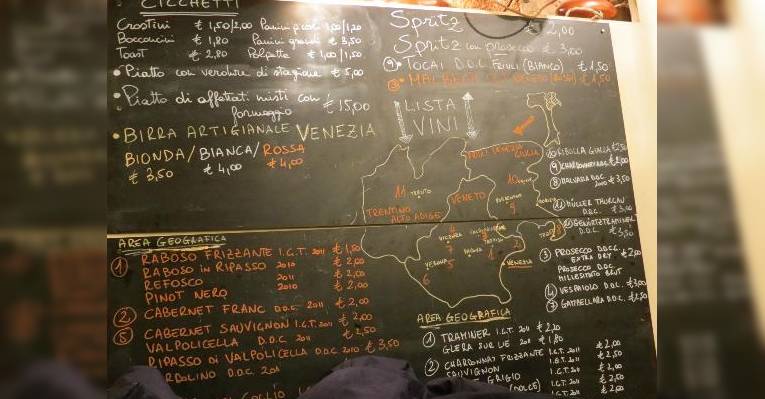 CICCHETTI
Crostini € 1,50/2,00 Panini piccoli 1,00/1,20
Bocconcini € 1,80 Panini grandi € 3,50
Toast € 2,80 Polpette € 1,00/1,50
• Piatto con verdure di stagione € 5,00
• Piatto di affettati misti con formaggio € 15,00
• BIRRA ARTIGIANALE VENEZIA
BIONDA/BIANCA/ROSSA
€ 3,50 € 4,00 € 4,00
Spritz € 2,00
Spritz con prosecco € 3,00
TOCAI D.O.C. FRIULI (BIANCO) € 1,50
MALBECH € 1,50
LISTA
VINI
FRIULI VENEZIA
GIULIA
11 TRENTO
TRENTINO
ALTO ADIGE
VENETO
10
9
VICENZA
VERONA
5
6
VENEZIA
RIBOLLA GIALLA € 2,50
CHARDONNAY € 2,00
MALVASIA D.O.C. 2010 € 3,50
MÜLLER THURGAU
D.O.C. € 3,50
GEWÜRTZTRAMINER
D.O.C. € 3,50
③ PROSECCO D.O.C.
EXTRA DRY € 2,00
PROSECCO D.O.C.
MILLESIMATO BRUT
④ VESPAIOLO D.O.C. € 3,00
⑦ GAMBELLARA D.O.C. € 2,50
AREA GEOGRAFICA
① RABOSO FRIZZANTE I.G.T. 2011 € 1,50
RABOSO IN RIPASSO 2010 € 2,00
REFOSCO 2011 € 2,00
PINOT NERO 2010 € 2,00
② CABERNET FRANC D.O.C. 2011 € 2,00
⑤ CABERNET SAUVIGNON I.G.T. 2011 € 2,00
VALPOLICELLA D.O.C. 2011 € 2,50
RIPASSO DI VALPOLICELLA D.O.C. 2010 € 3,50
RDOLINO D.O.C. 201
AREA GEOGRAFICA
① TRAMINER I.G.T. 2011 € 2,20
GLERA SUR LIE 2011 € 1,80
② CHARDONNAY FRIZZANTE I.G.T. 2011 € 2,00
SAUVIGNON I.G.T. 2011 € 2,50
GRIGIO I.G.T. 2011 € 2,00
(DOLCE) I.G.T. 2011 € 2,00